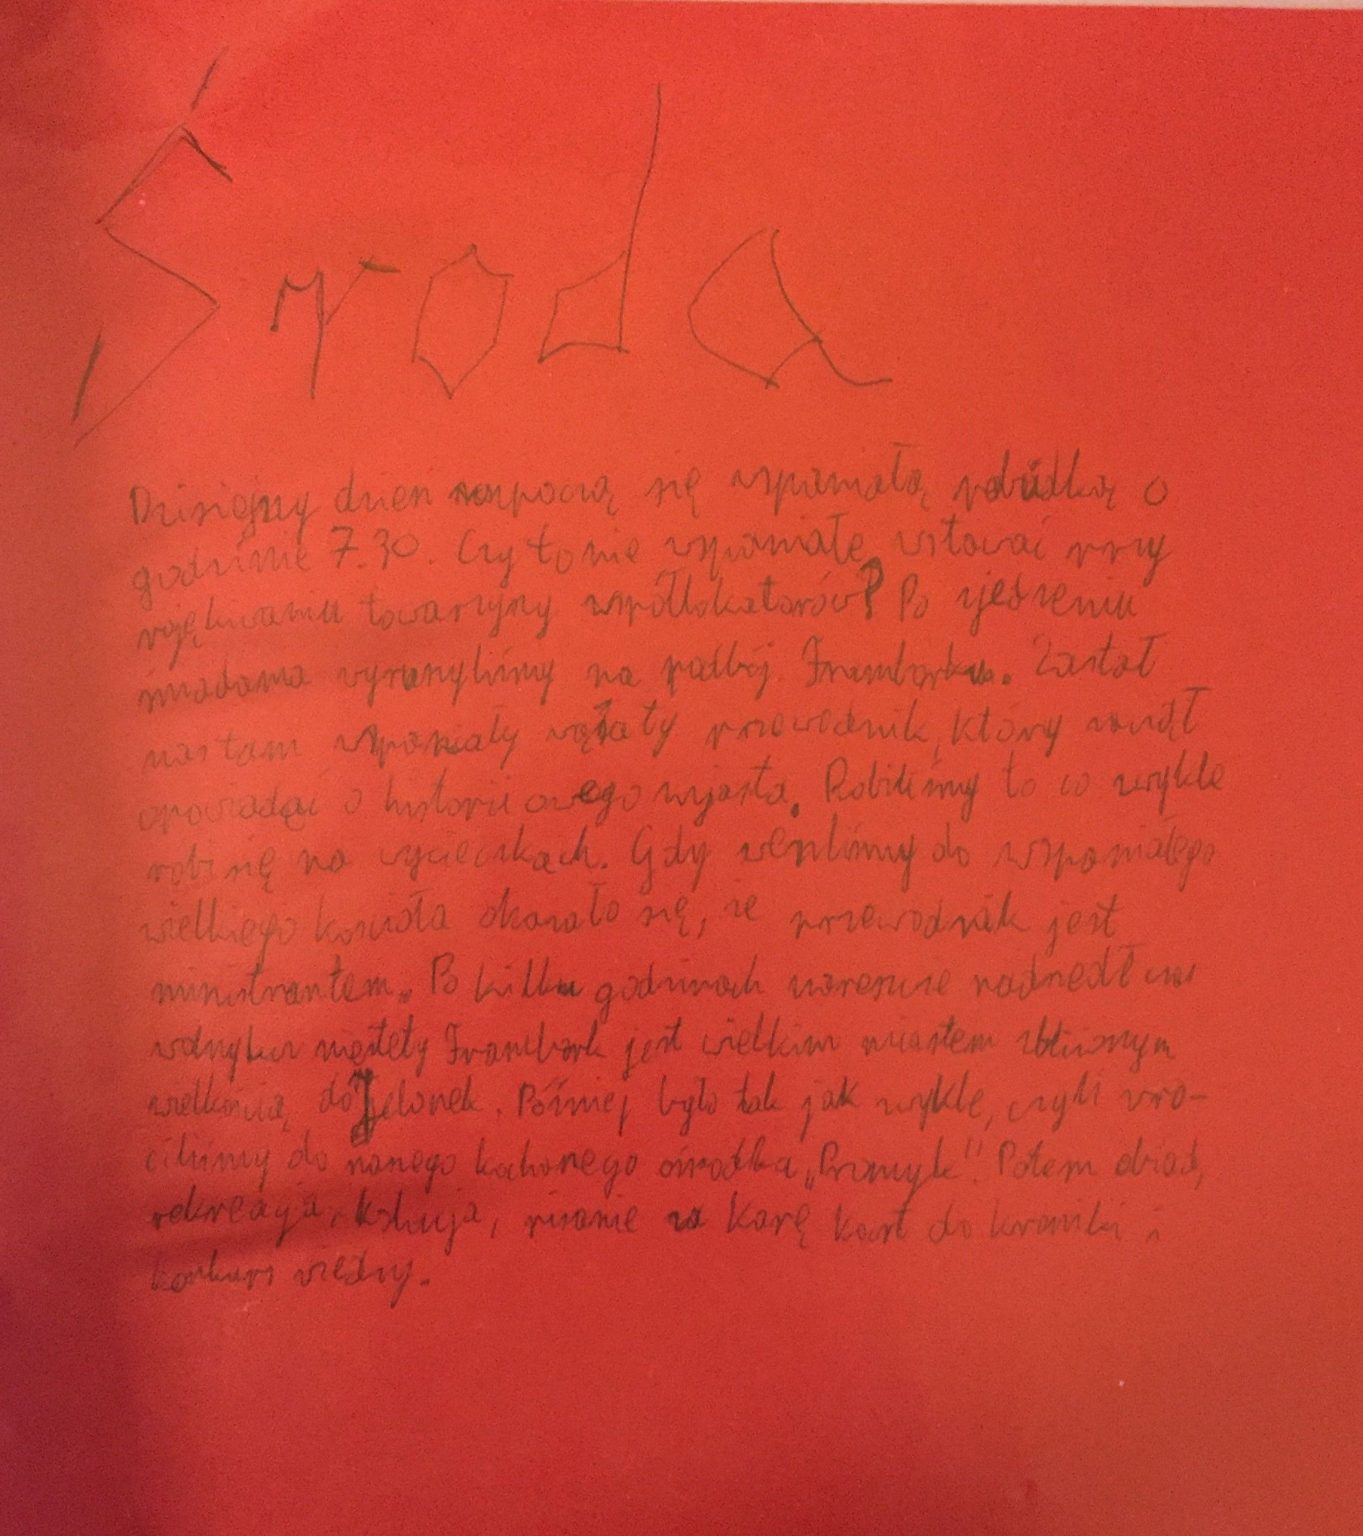 Środa
Dzisiejszy dzień rozpoczą się wspaniałą pobudką o
godzinie 7.30. Czy to nie wspaniałe wstawać przy
rozjękiwaniu towarzyszy współlokatorów? Po zjedzeniu
śniadania wyruszyliśmy na podbój Fromborku. Zastał
nas tam wspaniały wąsaty przewodnik, który zaczął
opowiadać o historii owego miasta. Robiliśmy to co zwykle
robi się na wycieczkach. Gdy weszliśmy do wspaniałego
wielkiego kościoła okazało się, że przewodnik jest
ministrantem. Po kilku godzinach nareszcie nadszedł czas
niestety Frombork jest wielkim miastem zbliżonym
wielkością do Jelonek. Później było tak jak zwykle, czyli wró-
ciliśmy do naszego kochanego ośrodka „Promyk". Potem obiad,
rekreacja, kolacja, pisanie za karę kart do kroniki i
konkurs wiedzy.